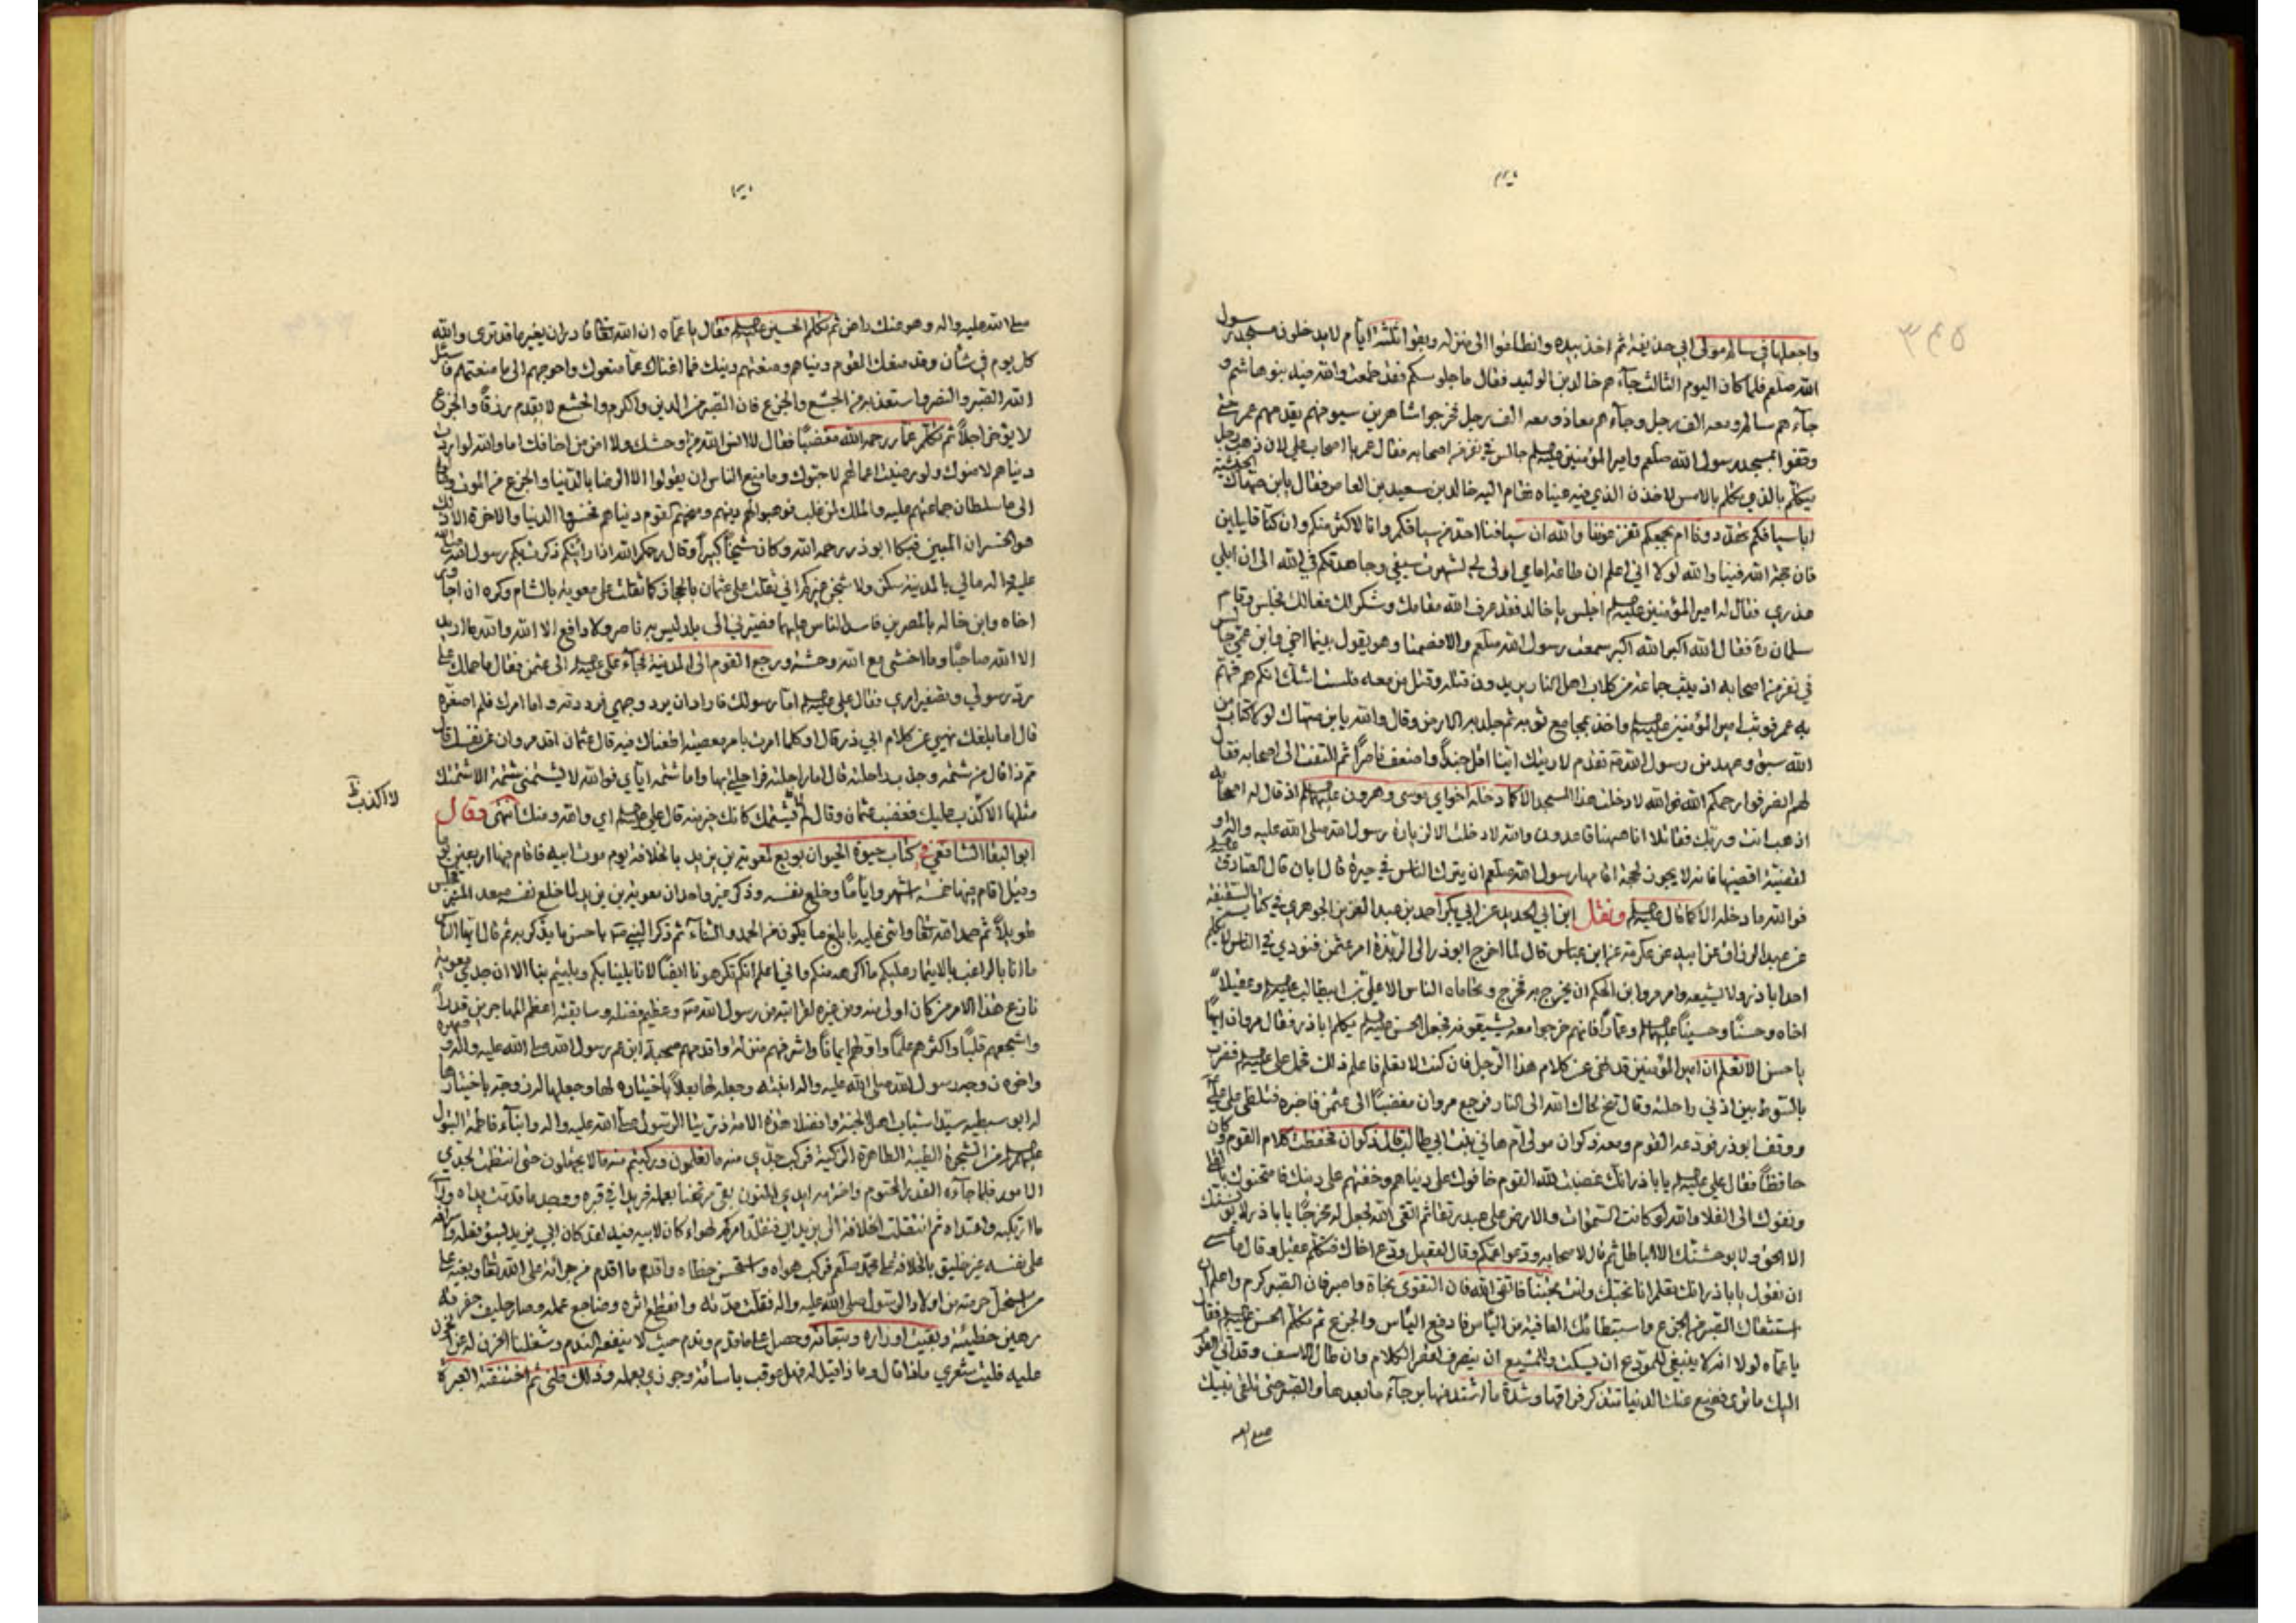 واجعلها في سالم مولى ابي حذيفة ثم اخذ بيده وانطلقوا الى منزله وبقوا ثلثة ايام لا يدخلون مسجد رسول
الله صلعم فلما كان اليوم الثالث جآءهم خالد بن الوليد فقال ما جلوسكم فقد طمعت والله فيه بنو هاشم و
جآءهم سالم ومعه الف رجل وجآءهم معاذ ومعه الف رجل فخرجوا شاهرين سيوفهم يقدمهم عمر حتى
وقفوا بمسجد رسول الله صلعم وامير المؤمنين عليه السلم جالس في نفر من اصحابه فقال عمر يا اصحاب علي لان ذهب رجل
يتكلم بالذي تكلم بالامس لاخذن الذي فيه عيناه فقام اليه خالد بن سعيد بن العاص فقال يابن صهاك الحبشية
اباسيافكم تهددونا ام بجمعكم تفزعوننا والله ان سيافنا احد من سيافكم وانا لاكثر منكم وان كنا قليلين
فان حجة الله فينا والله لولا اني اعلم ان طاعة امامي اولى بي لشهرت سيفي وجاهدتكم في الله الى ان ابلي
عذري فقال له امير المؤمنين عليه السلم اجلس يا خالد فقد عرف الله مقامك وشكر لك فعالك فجلس وقام
سلمان ره فقال الله اكبر الله اكبر سمعت رسول الله صلعم والا فصمتا وهو يقول بينما اخي وابن عمي جالس
في نفر من اصحابه اذ يثب جماعة من كلاب اهل النار يريدون قتله وقتل من معه فلست اشك انكم هم فهم
به عمر فوثب امير المؤمنين عليه السلم واخذ بمجامع ثوبه ثم جلد به الارض وقال والله يابن صهاك لولا كتاب من
الله سبق وعهد من رسول الله تقدم لاريتك اينا اقل جندا واضعف ناصرا ثم التفت الى اصحابه فقال
لهم انصرفوا رحمكم الله فوالله لا دخلت هذا المسجد الا كما دخله اخواي موسى وهرون عليهما السلم اذ قال له اصحابه
اذهب انت وربك فقاتلا انا ههنا قاعدون والله لا دخلت الا لزيارة رسول الله صلى الله عليه واله او
لقضية اقضيها فانه لا يجوز لحجة اقامها رسول الله صلعم ان يترك الناس في حيرة قال ابان قال الصادق عليه السلم
فوالله ما دخله الا كما قال عليه السلم ونقل ابن ابي الحديد عن ابي بكر احمد بن عبد العزيز الجوهري في كتاب السقيفة
عن عبد الرزاق عن ابيه عن عكرمة عن ابن عباس قال لما اخرج ابو ذر الى الربذة امر عثمن فنودي في الناس لا يكلم
احد اباذر ولا يشيعه وامر مروان بن الحكم ان يخرج به فخرج وتحاماه الناس الا علي بن ابيطالب عليه السلم وعقيلا
اخاه وحسنا وحسينا عليهما السلم وعمارا فانهم خرجوا معه يشيعونه فجعل الحسن عليه السلم يكلم اباذر فقال مروان ايها
يا حسن الا تعلم ان امير المؤمنين قد نهى عن كلام هذا الرجل فان كنت لا تعلم فاعلم ذلك فحمل علي عليه السلم فضرب
بالسوط بين اذني راحلته وقال تنح نحاك الله الى النار فرجع مروان مغضبا الى عثمن فاخبره فتلظى على علي
ووقف ابوذر فودعه القوم ومعه ذكوان مولى ام هاني بنت ابي طالب قال ذكوان فحفظت كلام القوم وكان
حافظا فقال علي عليه السلم يا باذر انك غضبت لله القوم خافوك على دنياهم وخفتهم على دينك فامتحنوك بالقلا
ونفوك الى الفلا والله لو كانت السموات والارض على عبد رتقا ثم اتقى الله لجعل له مخرجا يا باذر لا يونسنك
الا الحق ولا يوحشنك الا الباطل ثم قال لاصحابه ودعوا عمكم وقال لعقيل ودع اخاك فتكلم عقيل وقال ما عسى
ان نقول يا باذر انك تعلم انا نحبك وانت تحبنا فاتق الله فان التقوى نجاة واصبر فان الصبر كرم واعلم ان
استثقالك الصبر من الجزع واستبطائك العافية من الياس فادفع الياس والجزع ثم تكلم الحسن عليه السلم فقال
يا عماه لولا انه لا ينبغي للمودع ان يسكت وللمشيع ان ينصرف لقصر الكلام وان طال الاسف وقد اتى القوم
اليك ما ترى فضع عنك الدنيا بتذكر فراقها وشدة ما اشتد منها برجآء ما بعدها والصبر حتى تلقى نبيك
صلى الله
صلى الله عليه واله وهو عنك راض ثم تكلم الحسين عليه السلم فقال يا عماه ان الله تعالى قادر ان يغير ما قد ترى والله
كل يوم في شأن وقد منعك القوم دنياهم ومنعتهم دينك فما اغناك عما منعوك واحوجهم الى ما منعتهم فاسئل
الله الصبر والنصر واستعذ به من الجشع والجزع فان الصبر من الدين والكرم والجشع لا يقدم رزقا والجزع
لا يؤخر اجلا ثم تكلم عمار رحمه الله مغضبا فقال لا انس الله من اوحشك ولا امن من اخافك اما والله لو اردت
دنياهم لامنوك ولو رضيت اعمالهم لاحبوك وما منع الناس ان يقولوا الا الرضا بالدنيا والجزع من الموت ومالوا
الى ما سلطان جماعتهم عليه والملك لمن غلب فوهبوا لهم دينهم ومنحهم القوم دنياهم فخسروا الدنيا والاخرة الا ذلك
هو الخسران المبين فبكا ابوذر رحمه الله وكان شيخا كبيرا وقال رحمكم الله اذا رايتكم ذكرت بكم رسول الله صلى الله
عليه واله مالي بالمدينة سكن ولا شجن غيركم اني ثقلت على عثمان بالحجاز كما ثقلت على معوية بالشام وكره ان اجاور
اخاه وابن خاله بالمصرين فافسد الناس عليهما فصيرني الى بلد ليس به ناصر ولا دافع الا الله والله ما اريد
الا الله صاحبا وما اخشى مع الله وحشة ورجع القوم الى المدينة فجآء علي عليه السلم الى عثمن فقال ما حملك على
رد رسولي وتصغير امري فقال علي عليه السلم اما رسولك فاراد ان يرد وجهي فرددته واما امرك فلم اصغره
قال اما بلغك نهيي عن كلام ابي ذر قال اوكلما امرت بامر معصية اطعناك فيه قال عثمان اقد مروان من نفسك قال
مم ذا قال من شتمه وجذب راحلته قال اما راحلته فراحلتي بها واما شتمه اياي فوالله لا يشتمني شتمة الا شتمتك
مثلها الا كذب عليك فغضب عثمان وقال لم لا يشتمك كانك خير منه قال علي عليه السلم اي والله ومنك انتهى وقال
لا اكذب ظ
ابو البقا الشافعي في كتاب حيوة الحيوان بويع لمعوية بن يزيد بالخلافة يوم موت ابيه فاقام فيها اربعين يوما
وقيل اقام فيها خمسة اشهر واياما وخلع نفسه وذكر غير واحد ان معوية بن يزيد لما خلع نفسه صعد المنبر فجلس
طويلا ثم حمد الله تعالى واثنى عليه بابلغ ما يكون من الحمد والثناء ثم ذكر النبي ص باحسن ما يذكر به ثم قال ايها الناس
ما انا بالراغب بالايتمار عليكم ما اكرهه منكم واني اعلم انكم تكرهونا ايضا لانا بلينا بكم وبليتم بنا الا ان جدي معوية
نازع هذا الامر من كان اولى منه ومن غيره لقرابته من رسول الله ص وعظيم فضله وسابقته اعظم المهاجرين قدرا
واشجعهم قلبا واكثرهم علما واولهم ايمانا واشرفهم منزلة واقدمهم صحبة ابن عم رسول الله صلى الله عليه واله وصهره
واخوه زوجه رسول الله صلى الله عليه واله ابنته وجعله لها بعلا باختياره لها وجعلها له زوجة باختيارها
له ابو سبطيه سيدا شباب اهل الجنة وافضلا هذه الامة ذرية الرسول صلى الله عليه واله وابنآء فاطمة البتول
عليهم السلم من الشجرة الطيبة الطاهرة الزكية فركب جدي منه ما تعلمون وركبتم منه ما لا يجهلون حتى انتظمت لجدي
الامور فلما جآءه القدر المحتوم واخترمته ايدي المنون بقي مرتهنا بعمله فريدا في قبره ووجد ما قدمت يداه وراى
ما ارتكبه واعتداه ثم انتقلت الخلافة الى يزيد ابي فتقلد امركم لهواء كان لابيه فيه لقد كان ابي يزيد بسوء فعله واسرافه
على نفسه غير خليق بالخلافة على امة محمد صلعم فركب هواه واستحسن خطاه واقدم ما اقدم من جرائه على الله تعالى وبغيه على
من استحل حرمته من اولاد الرسول صلى الله عليه واله فقلت مدته وانقطع اثره وضاجع عمله وصار حليف حفرته
رهين خطيئته وبقيت اوزاره وتبعاته وحصل على ما قدم وندم حيث لا ينفعه الندم وشغلنا الحزن له عن الحزن
عليه فليت شعري ماذا قال وما ذا قيل له فهل عوقب باسائته وجوزي بعمله وذلك ظني ثم اختنقته العبرة